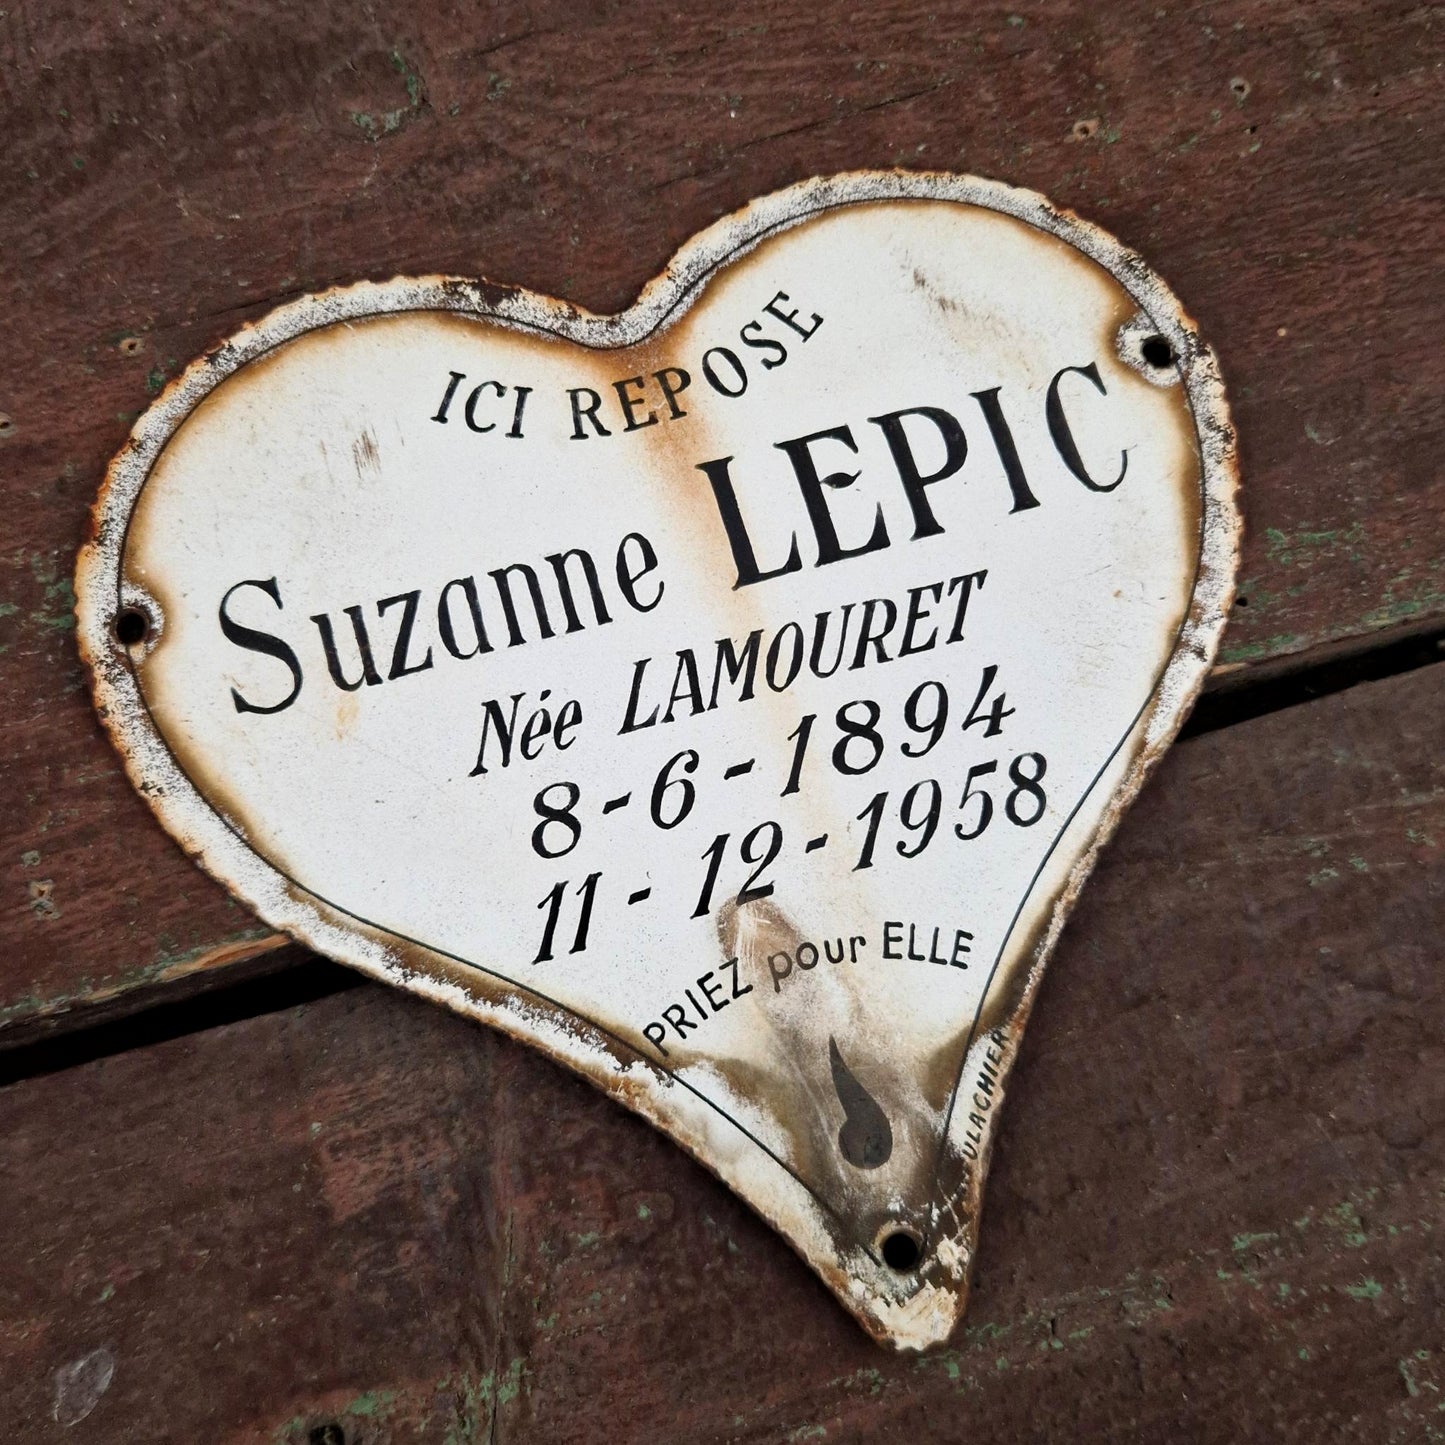 ICI REPOSE
Suzanne LEPIC
Née LAMOURET
8-6-1894
11-12-1958
PRIEZ pour ELLE
ULACHIER